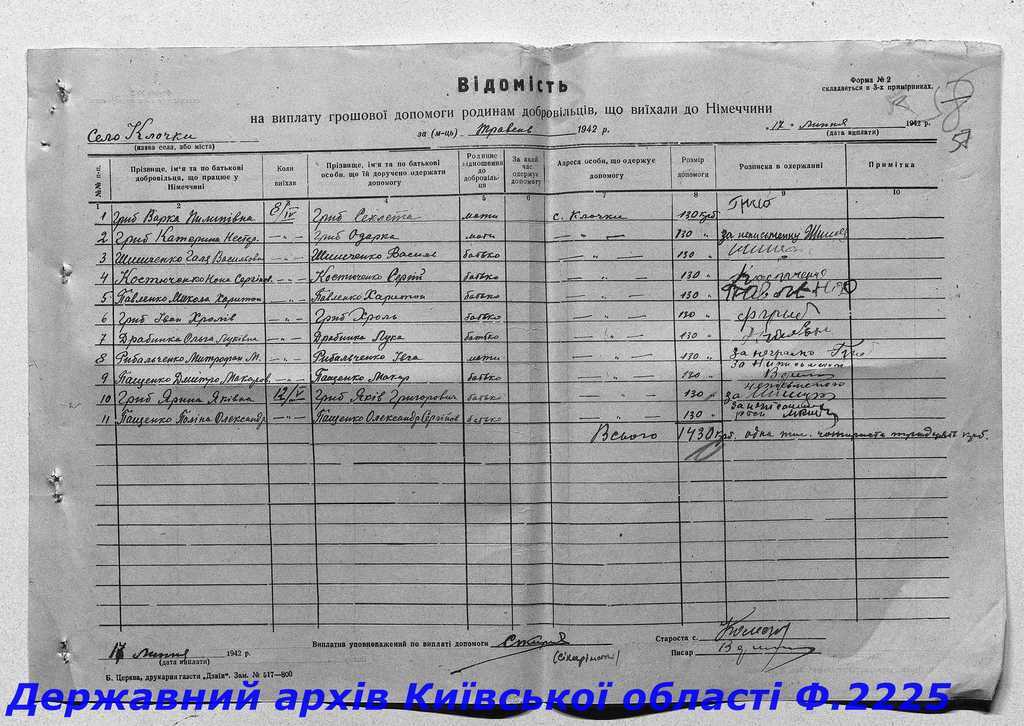 Відомість
на виплату грошової допомоги родинам добровільців, що виїхали до Німеччини
Форма № 2
складається в 3-х примірниках.
Село Клочки
(назва села, або міста)
за (м-ць) Травень 1942 р.
17 липня 1942 р.
(дата виплати)
№№ п-п. Прізвище, ім'я та по батькові добровільця, що працює у Німеччині Коли виїхав Прізвище, ім'я та по батькові особи, що їй доручено одержати допомогу Родинне відношення до добровільця За який час одержує допомогу Адреса особи, що одержує допомогу Розмір допомоги Розписка в одержанні Примітка
1 2 3 4 5 6 7 8 9 10
1 Гриб Варка Пилипівна 8/IV Гриб Секлета мати с. Клочки 130 крб Гриб
2 Гриб Катерина Нестер. — „ — Гриб Одарка мати — „ — 130 „ за неписьменну
3 Шишченко Галя Васильовн — „ — Шишченко Василь батько — „ — 130 „
4 Костюченко Ніна Сергіївн. — „ — Костюченко Сергій батько — „ — 130 „
5 Павленко Микола Харитон — „ — Павленко Харитон батько — „ — 130 „
6 Гриб Іван Хролів — „ — Гриб Хроль батько — „ — 130 „
7 Драбинка Ольга Луківна — „ — Драбинка Лука батько — „ — 130 „
8 Рибальченко Митрофан М. — „ — Рибальченко мати — „ — 130 „
9 Пащенко Дмитро Макаров — „ — Пащенко Макар батько — „ — 130 „
10 Гриб Ярина Яківна 12/V Гриб Яків Григорович батько — „ — 130 „ за
11 Пащенко Поліна Олександр — „ — Пащенко Олександр Сергійов батько — „ — 130 „
Всього 1430 крб. одна тис. чотириста тридцять крб.
17 липня 1942 р.
(дата виплати)
Виплатив уповноважений по виплаті допомоги
Староста с.
Писар
Б. Церква, друкарня газети „Дзвін". Зам. № 517—800
Державний архів Київської області Ф.2225